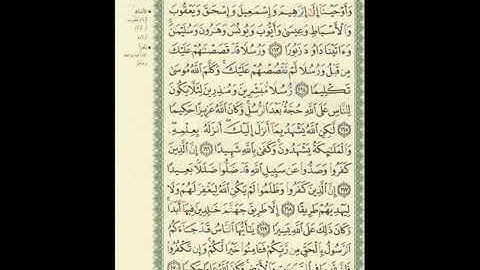 وَأَوْحَيْنَا إِلَىٰ إِبْرَاهِيمَ وَإِسْمَاعِيلَ وَإِسْحَاقَ وَيَعْقُوبَ
وَالْأَسْبَاطِ وَعِيسَىٰ وَأَيُّوبَ وَيُونُسَ وَهَارُونَ وَسُلَيْمَانَ
وَآتَيْنَا دَاوُودَ زَبُورًا ١٦٣ وَرُسُلًا قَدْ قَصَصْنَاهُمْ عَلَيْكَ
مِن قَبْلُ وَرُسُلًا لَّمْ نَقْصُصْهُمْ عَلَيْكَ وَكَلَّمَ اللَّهُ مُوسَىٰ
تَكْلِيمًا ١٦٤ رُّسُلًا مُّبَشِّرِينَ وَمُنذِرِينَ لِئَلَّا يَكُونَ
لِلنَّاسِ عَلَى اللَّهِ حُجَّةٌ بَعْدَ الرُّسُلِ وَكَانَ اللَّهُ عَزِيزًا حَكِيمًا
١٦٥ لَّٰكِنِ اللَّهُ يَشْهَدُ بِمَا أَنزَلَ إِلَيْكَ أَنزَلَهُ بِعِلْمِهِ
وَالْمَلَائِكَةُ يَشْهَدُونَ وَكَفَىٰ بِاللَّهِ شَهِيدًا ١٦٦ إِنَّ الَّذِينَ
كَفَرُوا وَصَدُّوا عَن سَبِيلِ اللَّهِ قَدْ ضَلُّوا ضَلَالًا بَعِيدًا
١٦٧ إِنَّ الَّذِينَ كَفَرُوا وَظَلَمُوا لَمْ يَكُنِ اللَّهُ لِيَغْفِرَ لَهُمْ وَلَا
لِيَهْدِيَهُمْ طَرِيقًا ١٦٨ إِلَّا طَرِيقَ جَهَنَّمَ خَالِدِينَ فِيهَا أَبَدًا
وَكَانَ ذَٰلِكَ عَلَى اللَّهِ يَسِيرًا ١٦٩ يَا أَيُّهَا النَّاسُ قَدْ جَاءَكُمُ
الرَّسُولُ بِالْحَقِّ مِن رَّبِّكُمْ فَآمِنُوا خَيْرًا لَّكُمْ وَإِن تَكْفُرُوا